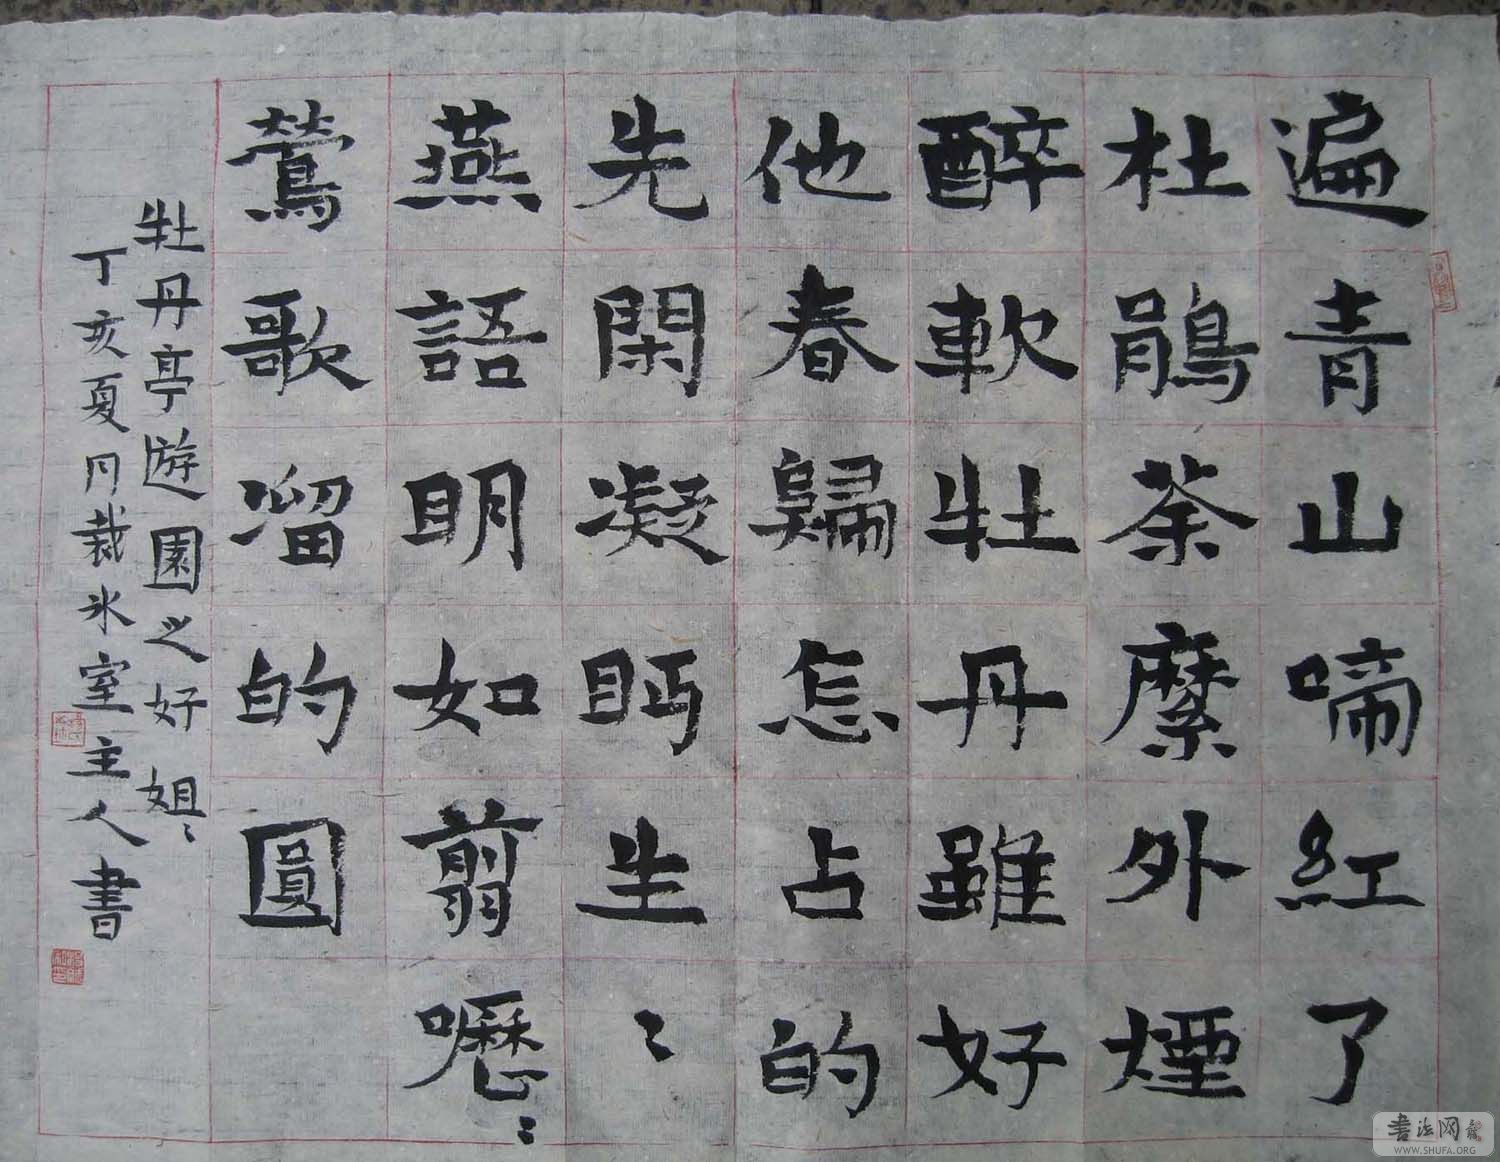 遍青山啼紅了
杜鵑荼縻外煙
醉軟牡丹雖好
他春歸怎占的
先閑凝眄生〻
燕語明如翦嚦〻
鶯歌溜的圓
牡丹亭遊園之好姐〻
丁亥夏月裁氷室主人書
書法网
WWW.SHUFA.ORG